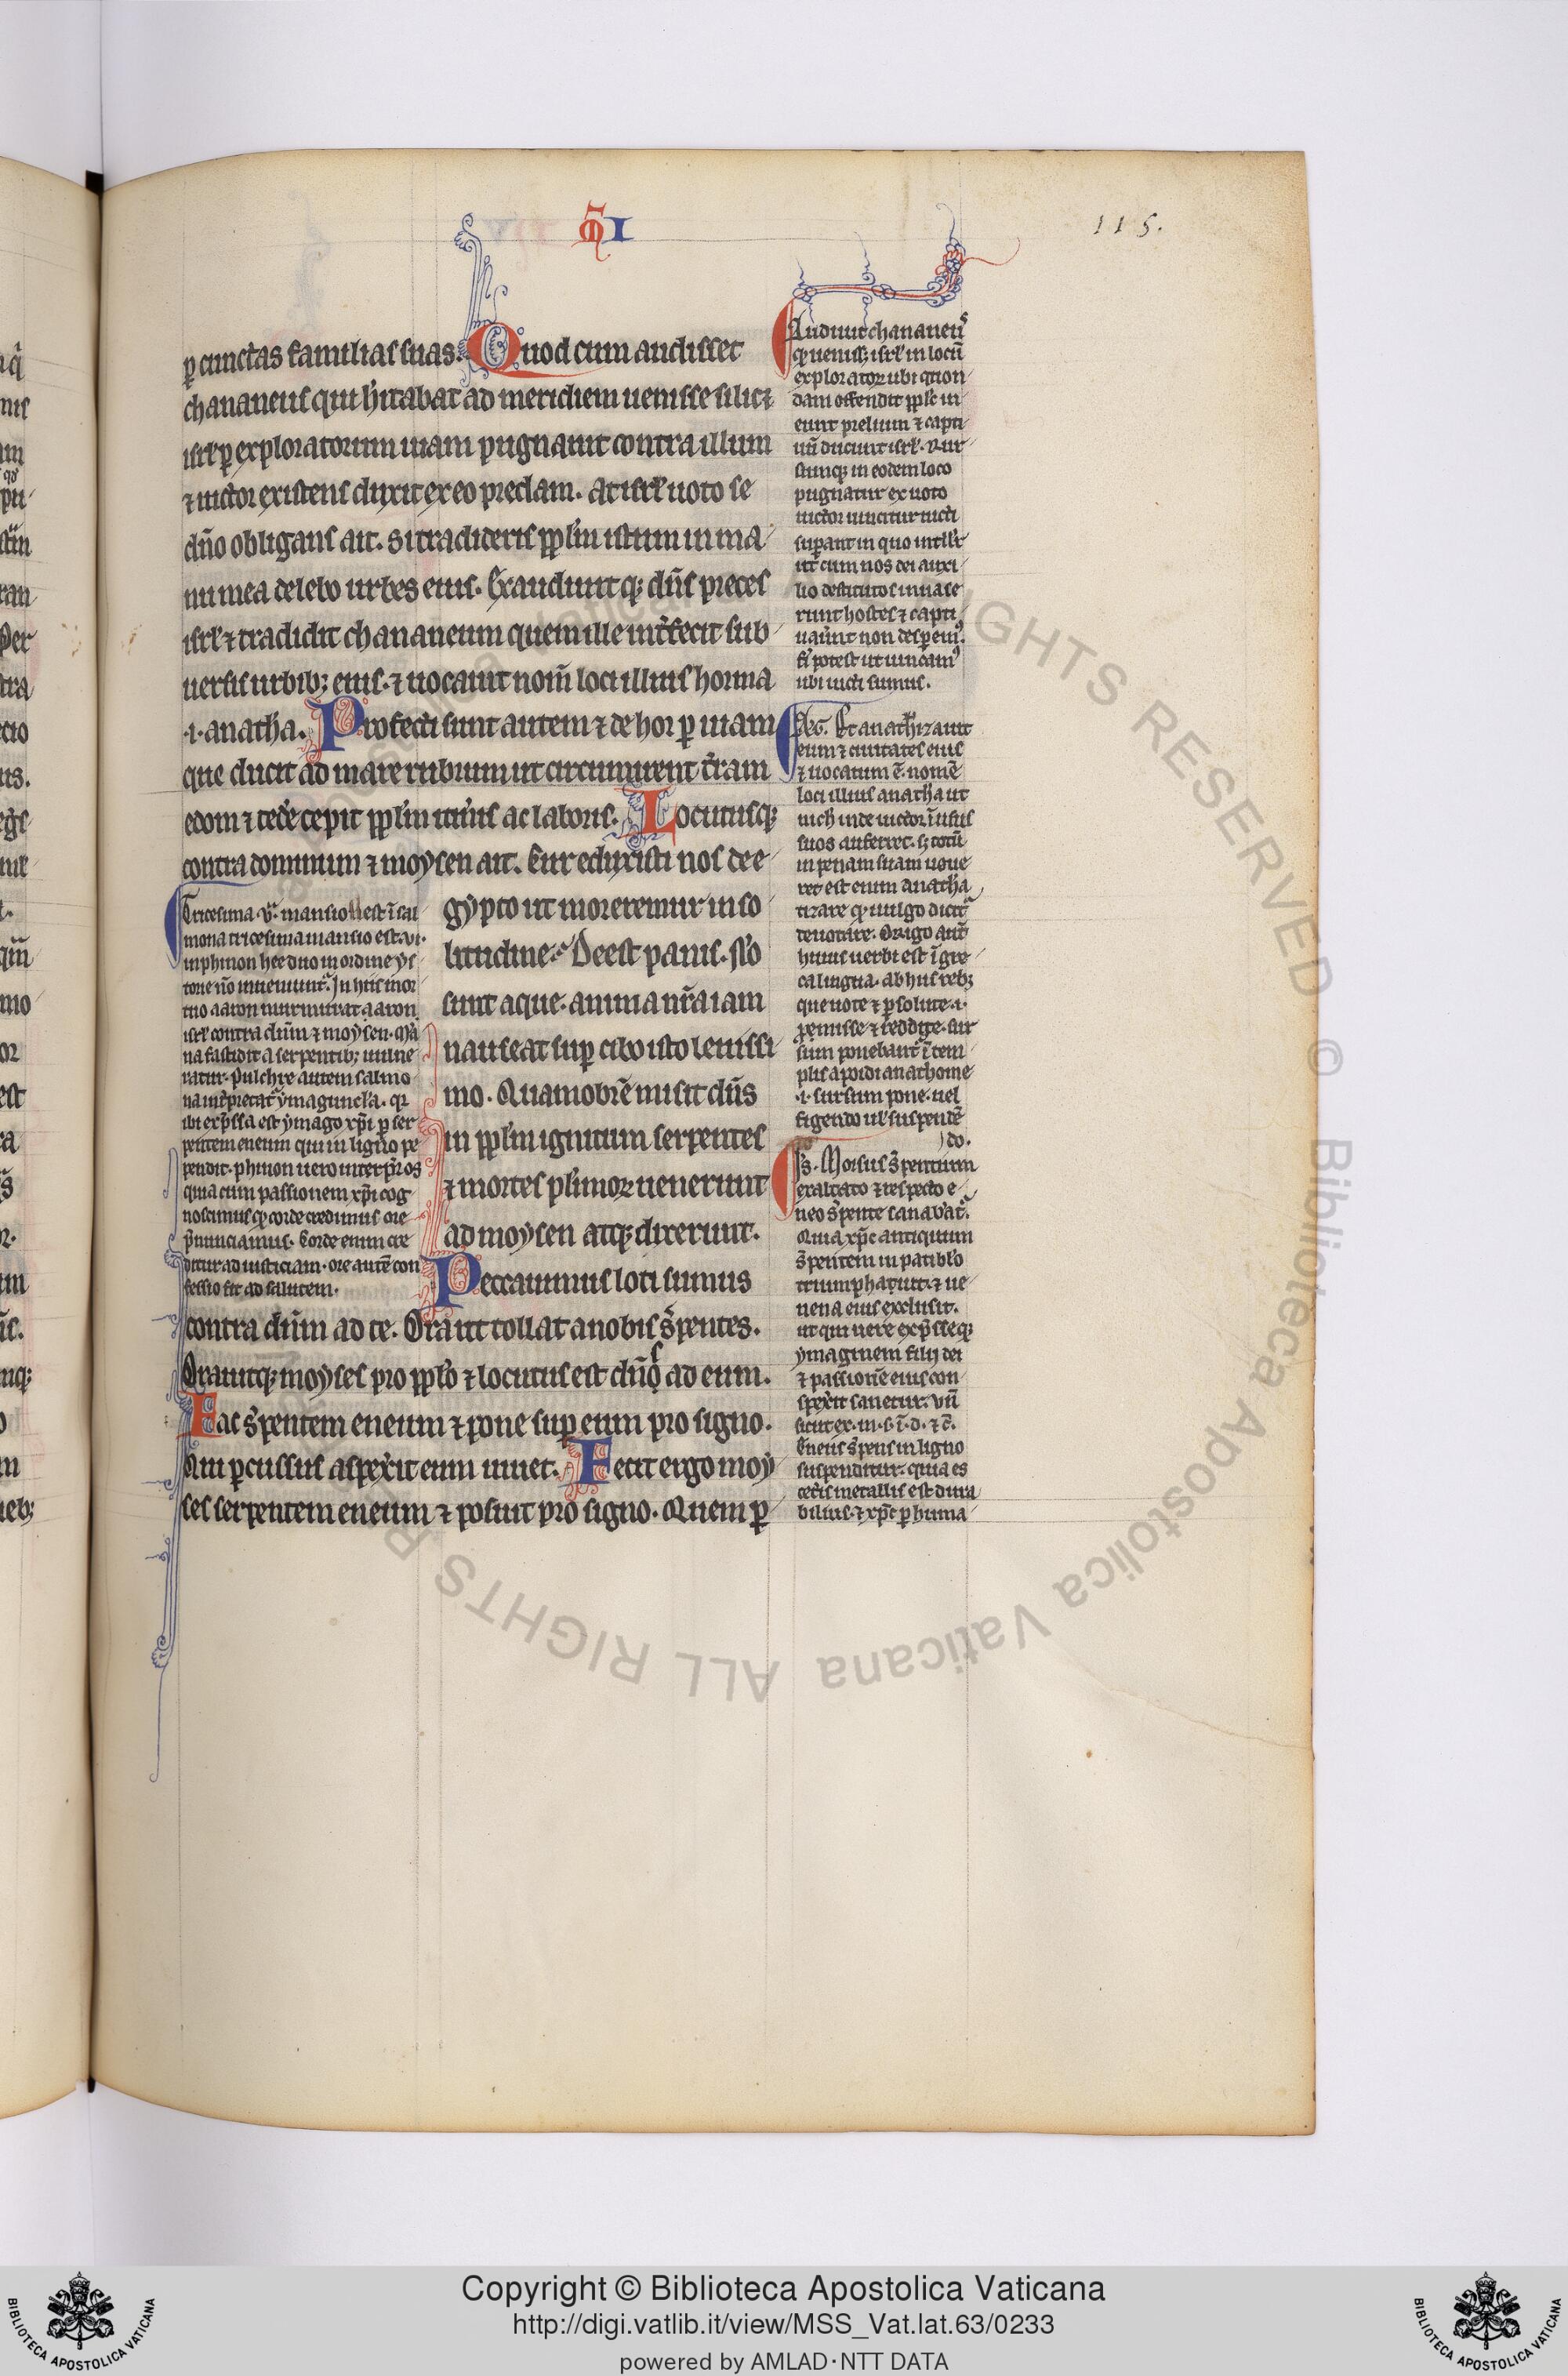 m̃I
115.
ꝑ cunctas familias suas. Quod cum audisset
chananeus qui h̃itabat ad meridiem uenisse silicꝫ
isrl̃ ꝑ exploratorum uiam pugnauit contra illum
⁊ uictor existens duxit ex eo predam. at isrl̃ uoto se
dño obligans ait. si tradideris ppl̃m istum in ma
nu mea delebo urbes eius. Exaudiuit qꝫ dñs preces
isrl̃ ⁊ tradidit chananeum quem ille int̃fecit sub
uersis urbibꝫ eius. ⁊ uocauit nom̃ loci illius horma
.i. anatha. Profecti sunt autem ⁊ de hor ꝑ uiam
que ducit ad mare rubrum ut circumirent t̃ram
edom ⁊ ted̃e cepit ppl̃m itin̾is ac laboris. Locutusqꝫ
contra dominum ⁊ moysen ait. Cur eduxisti nos de e
gypto ut moreremur in so
litudine. Deest panis. ño
sunt aque. anima nr̃a iam
nauseat sup cibo isto leuissi
mo. Quamobrẽ misit dñs
in ppl̃m ignitum serpentes
⁊ mortes pl̃imoꝝ uenerunt
ad moysen atqꝫ dixerunt.
Peccauimus loti sumus
contra dñm ad te. Ora ut tollat a nobis s̾pentes.
Orauitqꝫ moyses pro ppl̃o ⁊ locutus est dño ad eum.
Fac s̾pentem eneum ⁊ pone sup eum pro signo.
Qui ꝑcussus aspex̾it eum uiuet. Fecit ergo moy
ses serpentem eneum ⁊ posuit pro signo. Quem ꝑ
Tricesima .v. mansio est ĩ sal
mona tricesima mansio est .vi.
in phinon hee due in ordine ys
torie ño inueniunt̃. In hiis mor
tuo aaron murmurat aaron
isrl̃ contra dñm ⁊ moysen. Ma
na fastidit a serpentibꝫ uulne
ratur. Pulchre autem salmo
na int̾pretat̃ ymaguncl̃a. qr
ibi exp̃ssa est ymago xp̃i ꝑ ser
pentem eneum qui in ligno pe
pendit. phinon uero interp̃r os
quia cum passionem xp̃i cog
noscimus qꝫ corde credimus ore
p̃nunciamus. Corde enim cre
ditur ad iusticiam. ore autẽ con
fessio fit ad salutem.
Audiuit chananeus
qꝫ uenissꝫ isrl̃ in locũ
exploratoꝝ ubi quon
dam offendit ppl̃s in
eunt prelium ⁊ capti
uũ ducunt isrl̃. Rur
sumqꝫ in eodem loco
pugnatur ex uoto
uictor uincitur uicti
supant in quo intell̃r
ut cum nos dei auxi
lio destitutos inuase
runt hostes ⁊ capti
uau̾int non desperem᷒
s̃ potest ut uincam᷒
ubi uicti sumus.
Et anath̾izauit
eum ⁊ ciuitates eius
⁊ uocatum ẽ nomẽ
loci illius anatha ut
nich̾ inde uictor ĩ usus
suos auferret. sꝫ totũ
in penam suam uoue
ret est enim anatha
tizare qꝫ uulgo dicit̃
deuotare. Origo aut̃
huius uerbi est ĩ gre
ca lingua. ab hiis rebꝫ
que uote ⁊ ꝑsolute .i.
ꝓmisse ⁊ reddite. sur
sum ponebant̃ ĩ tem
plis apoidi anathome
.i. sursum pone. uel
figendo ul̃ suspendẽ
do.
Morsus s̾pentium
exaltato ⁊ respecto e
neo s̾pente sanabat̃.
Quia xp̃c antiquum
s̾pentem in patibl̃o
triumphauit. ⁊ ue
nena eius exclusit.
ut qui uere exp̃sseqꝫ
ymaginem filij dei
⁊ passionẽ eius con
spex̾it sanetur. Vñ
Eneus s̾pens in ligno
suspenditur. quia es
cet̾is metallis est dura
bilius. ⁊ xp̃c ꝑ huma
Copyright © Biblioteca Apostolica Vaticana
http://digi.vatlib.it/view/MSS_Vat.lat.63/0233
powered by AMLAD·NTT DATA
BIBLIOTECA APOSTOLICA VATICANA
BIBLIOTECA APOSTOLICA VATICANA
Biblioteca Apostolica Vaticana ALL RIGHTS RESERVED ©